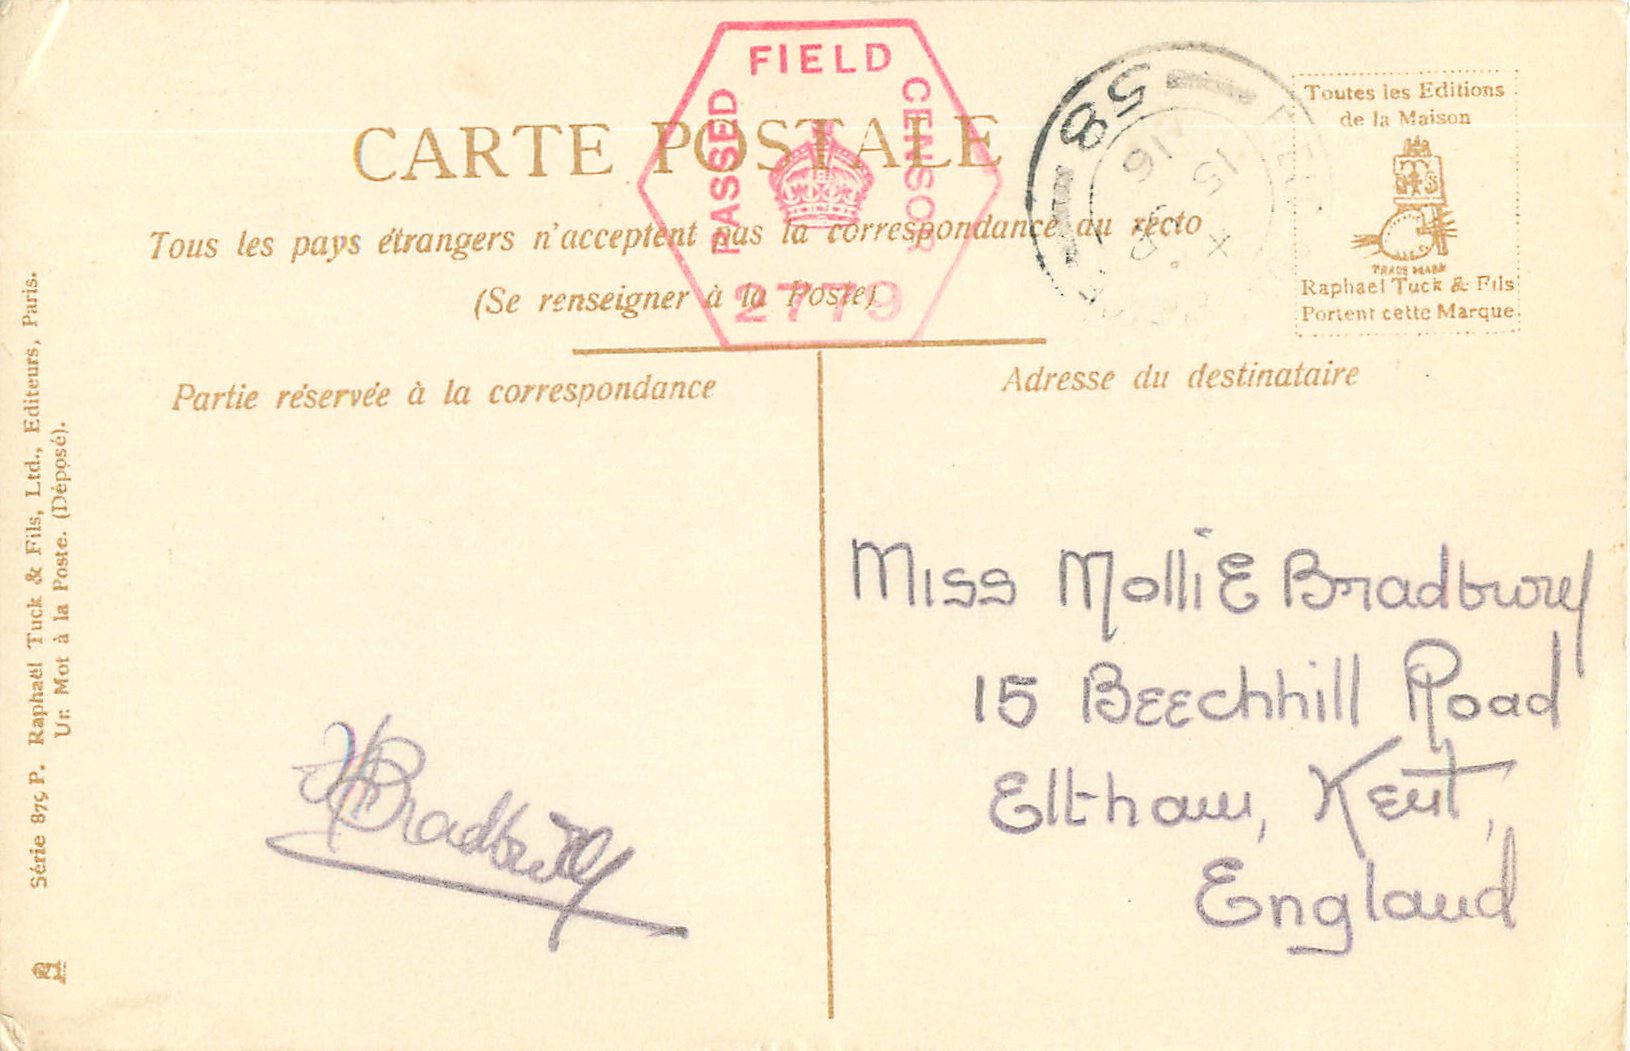 FIELD
PASSED
CENSOR
2779
58
16
15
X
Toutes les Editions
de la Maison
TRADE MARK
Raphael Tuck & Fils
Portent cette Marque
CARTE POSTALE
Tous les pays étrangers n'acceptent pas la correspondance au recto
(Se renseigner à la Poste)
Partie réservée à la correspondance
Adresse du destinataire
Miss Mollie Bradbury
15 Beechhill Road
Eltham, Kent,
England
Bradbury
Série 875 P. Raphaël Tuck & Fils, Ltd., Editeurs, Paris.
Un Mot à la Poste. (Déposé).